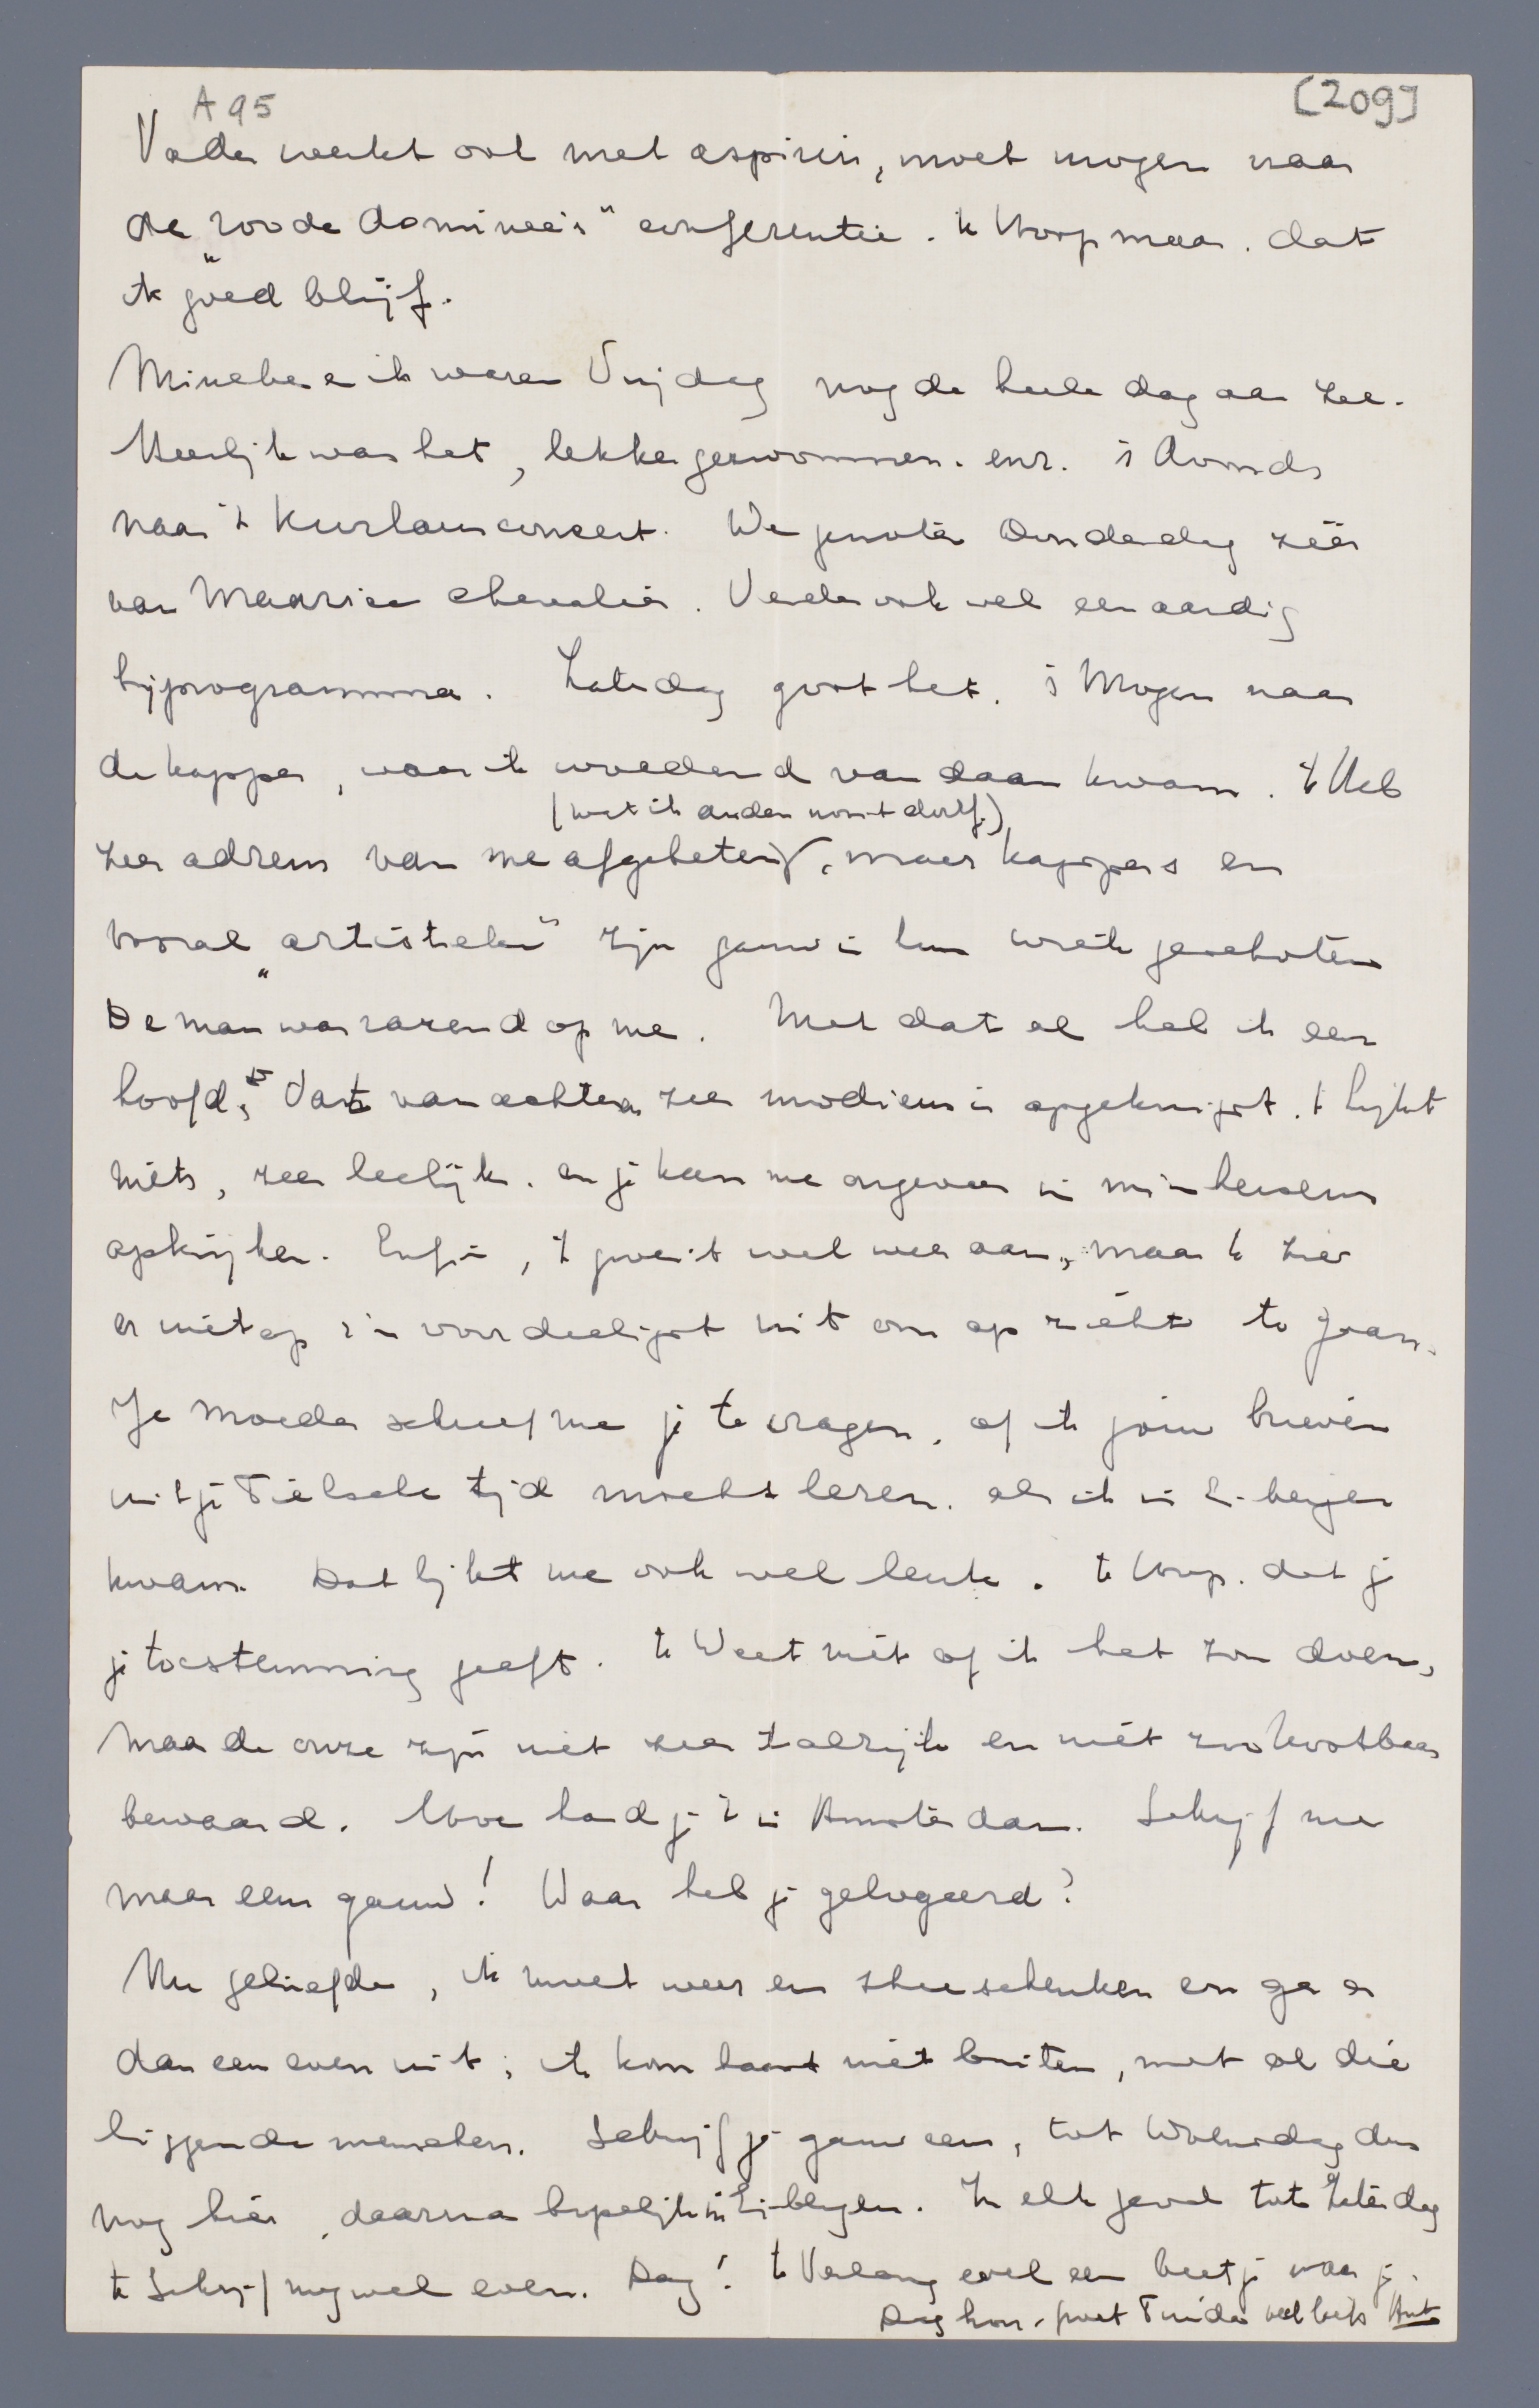 A 95
[209]
Vader werkt ook met aspirin, moet morgen naar
de "roode dominee's" conferentie. 'k Hoop maar. dat
ik goed blijf.
Mineke en ik waren Vrijdag nog de heele dag aan zee.
Heerlijk was het, lekker gezwommen. enz. 's Avonds
naar 't Kurhausconcert. We genoten Donderdag zéér
van Maurice Chevalier. Verder ook wel een aardig
bijprogramma. Zaterdag goot het. 's Morgens naar
de kapper, waar ik woedend vandaan kwam. 'k Heb
(wat ik anders nooit durf)
zeer adrem van me afgebeten, maar kappers en
vooral "artistieke" zijn gauw in hun wiek geschoten
De man was razend op me. Met dat al heb ik een
hoofd, dat van achteren zeer modieus is opgeknipt. 't Lijkt
niets, zeer leelijk. en je kan me ongeveer in m'n hersens
opkijken. Enfin, 't groeit wel weer aan, maar 'k zie
er niet op z'n voordeeligst uit om op zicht te gaan.
Je Moeder schreef me je te vragen, of ik jouw brieven
uit je Tielsche tijd mocht lezen. als ik in Eibergen
kwam. Dat lijkt me ook wel leuk. 'k Hoop. dat je
je toestemming geeft. 'k Weet niet of ik het zou doen,
maar de onze zijn niet zeer talrijk en niet zoo kostbaar
bewaard. Hoe had je 't in Amsterdam. Schrijf me
maar eens gauw! Waar heb je gelogeerd?
Nu geliefde, ik moet weer eens thee schenken en ga er
dan een even uit; ik kon haast niet buiten, met al die
liggende menschen. Schrijf je gauw eens, tot Woensdag dus
nog hier, daarna in Eibergen. In elk geval tot Zaterdag
'k Schrijf nog wel even. Dag! 'k Verlang veel een beetje naar je.
Dag hoor. groet Truida veel liefs Ant